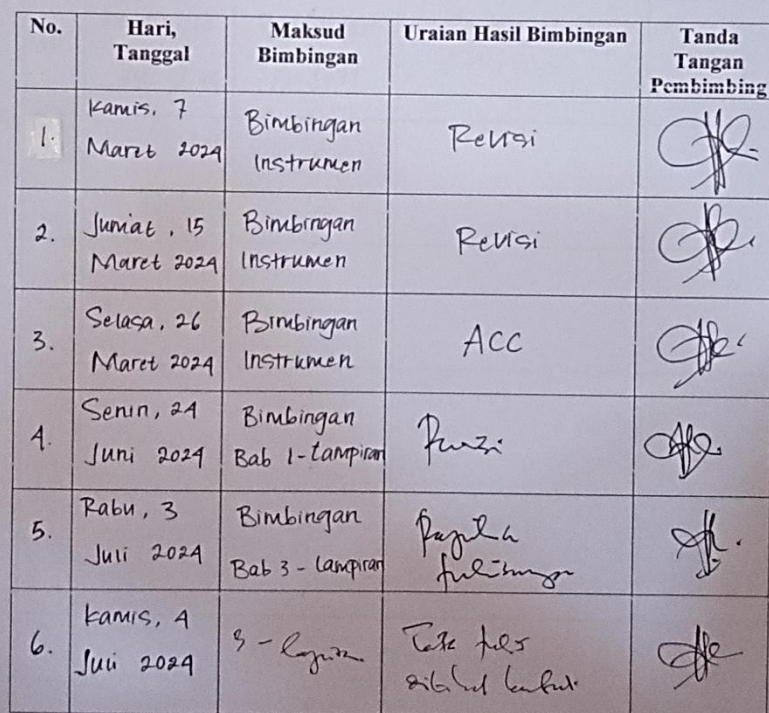 No. Hari, Tanggal Maksud Bimbingan Uraian Hasil Bimbingan Tanda Tangan Pembimbing
1. Kamis, 7 Maret 2024 Bimbingan Instrumen Revisi
2. Jumat, 15 Maret 2024 Bimbingan Instrumen Revisi
3. Selasa, 26 Maret 2024 Bimbingan Instrumen ACC
4. Senin, 24 Juni 2024 Bimbingan Bab 1 - Lampiran
5. Rabu, 3 Juli 2024 Bimbingan Bab 3 - Lampiran
6. Kamis, 4 Juli 2024 3 -